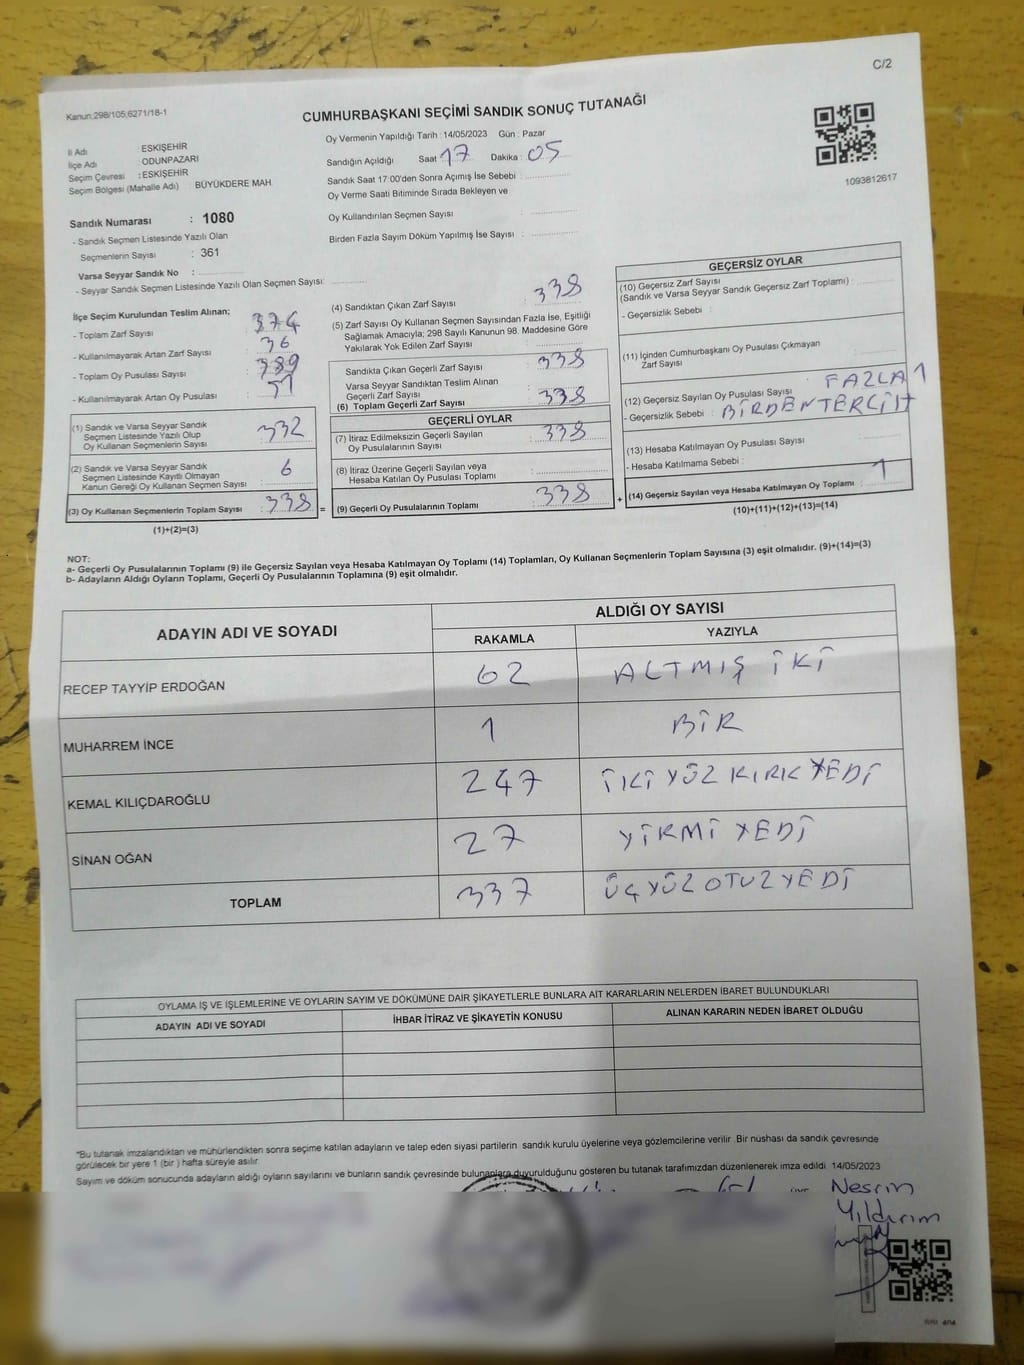 C/2
Kanun:298/105;6271/18-1
CUMHURBAŞKANI SEÇİMİ SANDIK SONUÇ TUTANAĞI
İl Adı ESKİŞEHİR
İlçe Adı ODUNPAZARI
Seçim Çevresi : ESKİŞEHİR
Seçim Bölgesi (Mahalle Adı) : BÜYÜKDERE MAH.
Oy Vermenin Yapıldığı Tarih : 14/05/2023 Gün : Pazar
Sandığın Açıldığı Saat 17 Dakika : 05
Sandık Saat 17:00'den Sonra Açımış İse Sebebi :
Oy Verme Saati Bitiminde Sırada Bekleyen ve
Oy Kullandırılan Seçmen Sayısı :
Birden Fazla Sayım Döküm Yapılmış İse Sayısı :
1093812617
Sandık Numarası : 1080
- Sandık Seçmen Listesinde Yazılı Olan
Seçmenlerin Sayısı : 361
Varsa Seyyar Sandık No :
- Seyyar Sandık Seçmen Listesinde Yazılı Olan Seçmen Sayısı:
İlçe Seçim Kurulundan Teslim Alınan;
- Toplam Zarf Sayısı : 374
- Kullanılmayarak Artan Zarf Sayısı : 36
- Toplam Oy Pusulası Sayısı : 389
- Kullanılmayarak Artan Oy Pusulası : 51
(1) Sandık ve Varsa Seyyar Sandık
Seçmen Listesinde Yazılı Olup
Oy Kullanan Seçmenlerin Sayısı : 332
(2) Sandık ve Varsa Seyyar Sandık
Seçmen Listesinde Kayıtlı Olmayan
Kanun Gereği Oy Kullanan Seçmen Sayısı : 6
(3) Oy Kullanan Seçmenlerin Toplam Sayısı : 338 =
(1)+(2)=(3)
(4) Sandıktan Çıkan Zarf Sayısı : 338
(5) Zarf Sayısı Oy Kullanan Seçmen Sayısından Fazla İse, Eşitliği
Sağlamak Amacıyla; 298 Sayılı Kanunun 98. Maddesine Göre
Yakılarak Yok Edilen Zarf Sayısı :
Sandıkta Çıkan Geçerli Zarf Sayısı : 338
Varsa Seyyar Sandıktan Teslim Alınan
Geçerli Zarf Sayısı :
(6) Toplam Geçerli Zarf Sayısı : 338
GEÇERLİ OYLAR
(7) İtiraz Edilmeksizin Geçerli Sayılan
Oy Pusulalarının Sayısı : 338
(8) İtiraz Üzerine Geçerli Sayılan veya
Hesaba Katılan Oy Pusulası Toplamı :
(9) Geçerli Oy Pusulalarının Toplamı : 338 +
GEÇERSİZ OYLAR
(10) Geçersiz Zarf Sayısı
(Sandık ve Varsa Seyyar Sandık Geçersiz Zarf Toplamı) :
- Geçersizlik Sebebi :
(11) İçinden Cumhurbaşkanı Oy Pusulası Çıkmayan
Zarf Sayısı :
(12) Geçersiz Sayılan Oy Pusulası Sayısı : FAZLA 1
- Geçersizlik Sebebi : BİRDEN TERCİH
(13) Hesaba Katılmayan Oy Pusulası Sayısı :
- Hesaba Katılmama Sebebi :
(14) Geçersiz Sayılan veya Hesaba Katılmayan Oy Toplamı : 1
(10)+(11)+(12)+(13)=(14)
NOT:
a- Geçerli Oy Pusulalarının Toplamı (9) ile Geçersiz Sayılan veya Hesaba Katılmayan Oy Toplamı (14) Toplamları, Oy Kullanan Seçmenlerin Toplam Sayısına (3) eşit olmalıdır. (9)+(14)=(3)
b- Adayların Aldığı Oyların Toplamı, Geçerli Oy Pusulalarının Toplamına (9) eşit olmalıdır.
ADAYIN ADI VE SOYADI
ALDIĞI OY SAYISI
RAKAMLA YAZIYLA
RECEP TAYYİP ERDOĞAN 62 ALTMIŞ İKİ
MUHARREM İNCE 1 BİR
KEMAL KILIÇDAROĞLU 247 İKİ YÜZ KIRK YEDİ
SİNAN OĞAN 27 YİRMİ YEDİ
TOPLAM 337 ÜÇ YÜZ OTUZ YEDİ
OYLAMA İŞ VE İŞLEMLERİNE VE OYLARIN SAYIM VE DÖKÜMÜNE DAİR ŞİKAYETLERLE BUNLARA AİT KARARLARIN NELERDEN İBARET BULUNDUKLARI
ADAYIN ADI VE SOYADI İHBAR İTİRAZ VE ŞİKAYETİN KONUSU ALINAN KARARIN NEDEN İBARET OLDUĞU
*Bu tutanak imzalandıktan ve mühürlendikten sonra seçime katılan adayların ve talep eden siyasi partilerin sandık kurulu üyelerine veya gözlemcilerine verilir. Bir nüshası da sandık çevresinde
görülecek bir yere 1 (bir ) hafta süreyle asılır.
Sayım ve döküm sonucunda adayların aldığı oyların sayılarını ve bunların sandık çevresinde bulunanlara duyurulduğunu gösteren bu tutanak tarafımızdan düzenlenerek imza edildi. 14/05/2023
Nesrin
Yıldırım